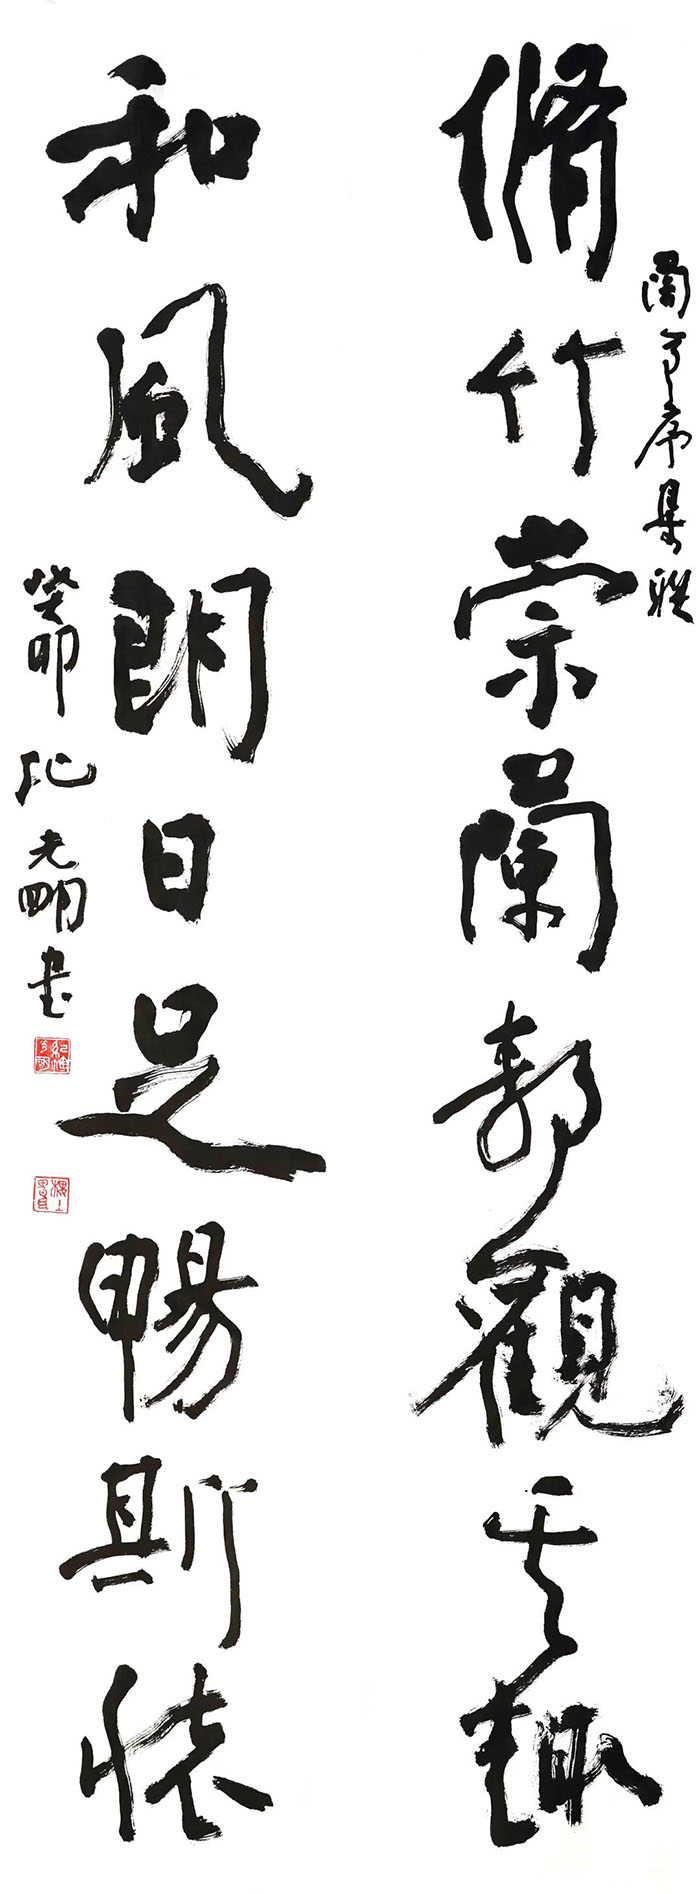 蘭亭序集聯
脩竹崇蘭靜觀其趣
和風朗日足暢斯懷
癸卯紀光明書